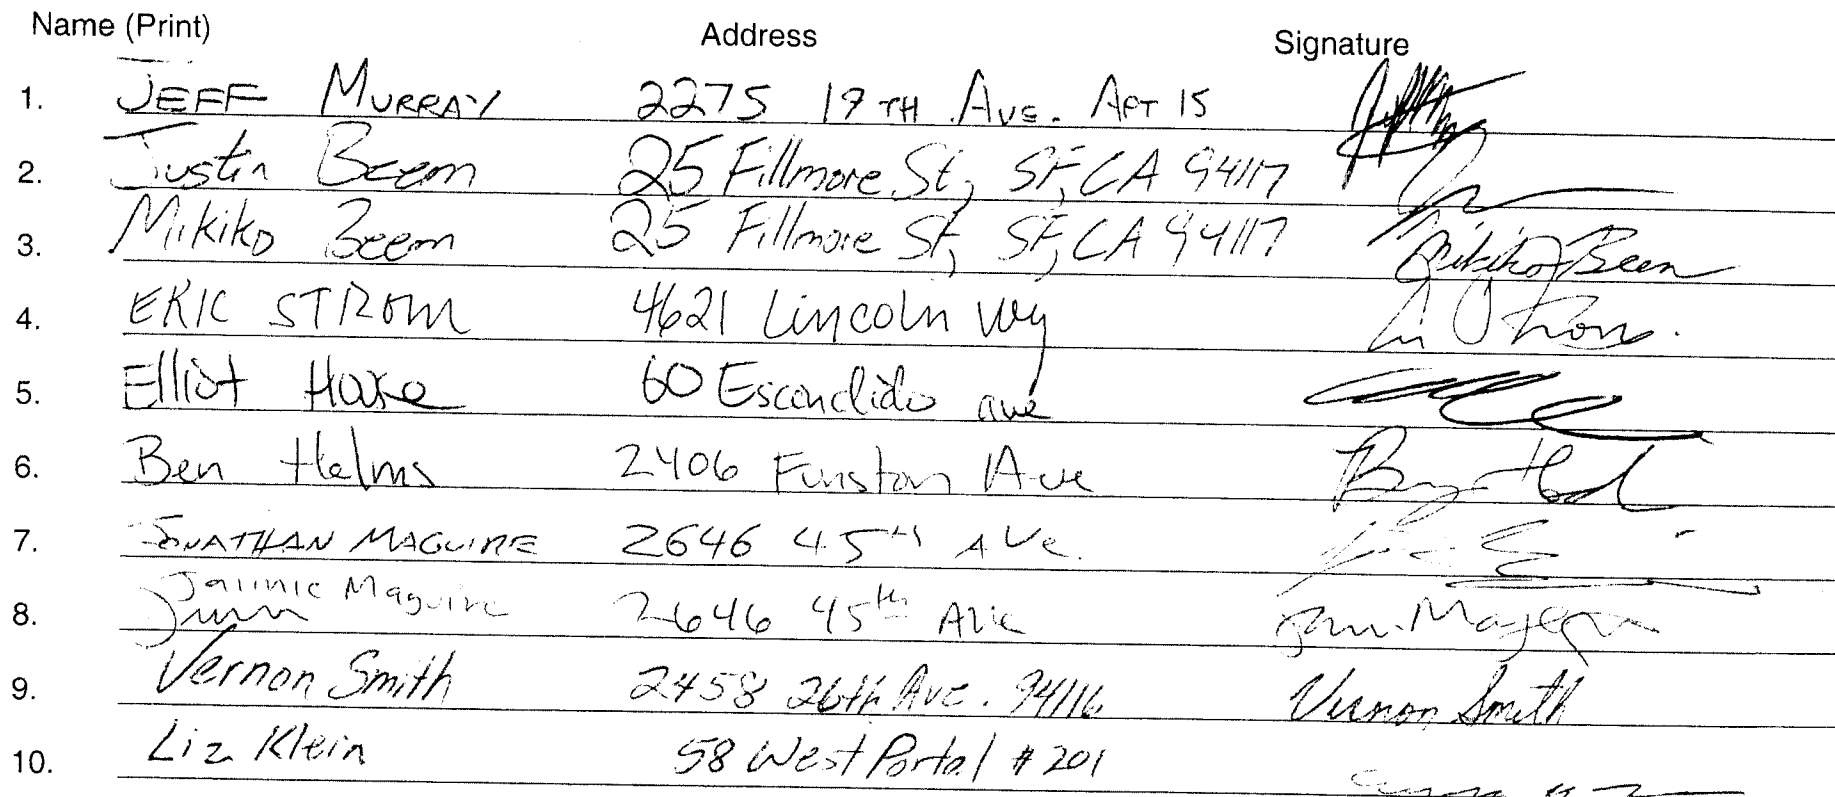 Name (Print) Address Signature
1. JEFF MURRAY 2275 19TH AVE. APT 15
2. Justin Beem 25 Fillmore St, SF, CA 94117
3. Mikiko Beem 25 Fillmore St, SF, CA 94117 Mikiko Beem
4. ERIC STROM 4621 Lincoln Wy
5. Elliot Hare 60 Escondido ave
6. Ben Helms 2406 Funston Ave
7. JONATHAN MAGUIRE 2646 45th AVe.
8. Jaimie Maguire 2646 45th Ave
9. Vernon Smith 2458 26th Ave. 94116 Vernon Smith
10. Liz Klein 58 West Portal #201